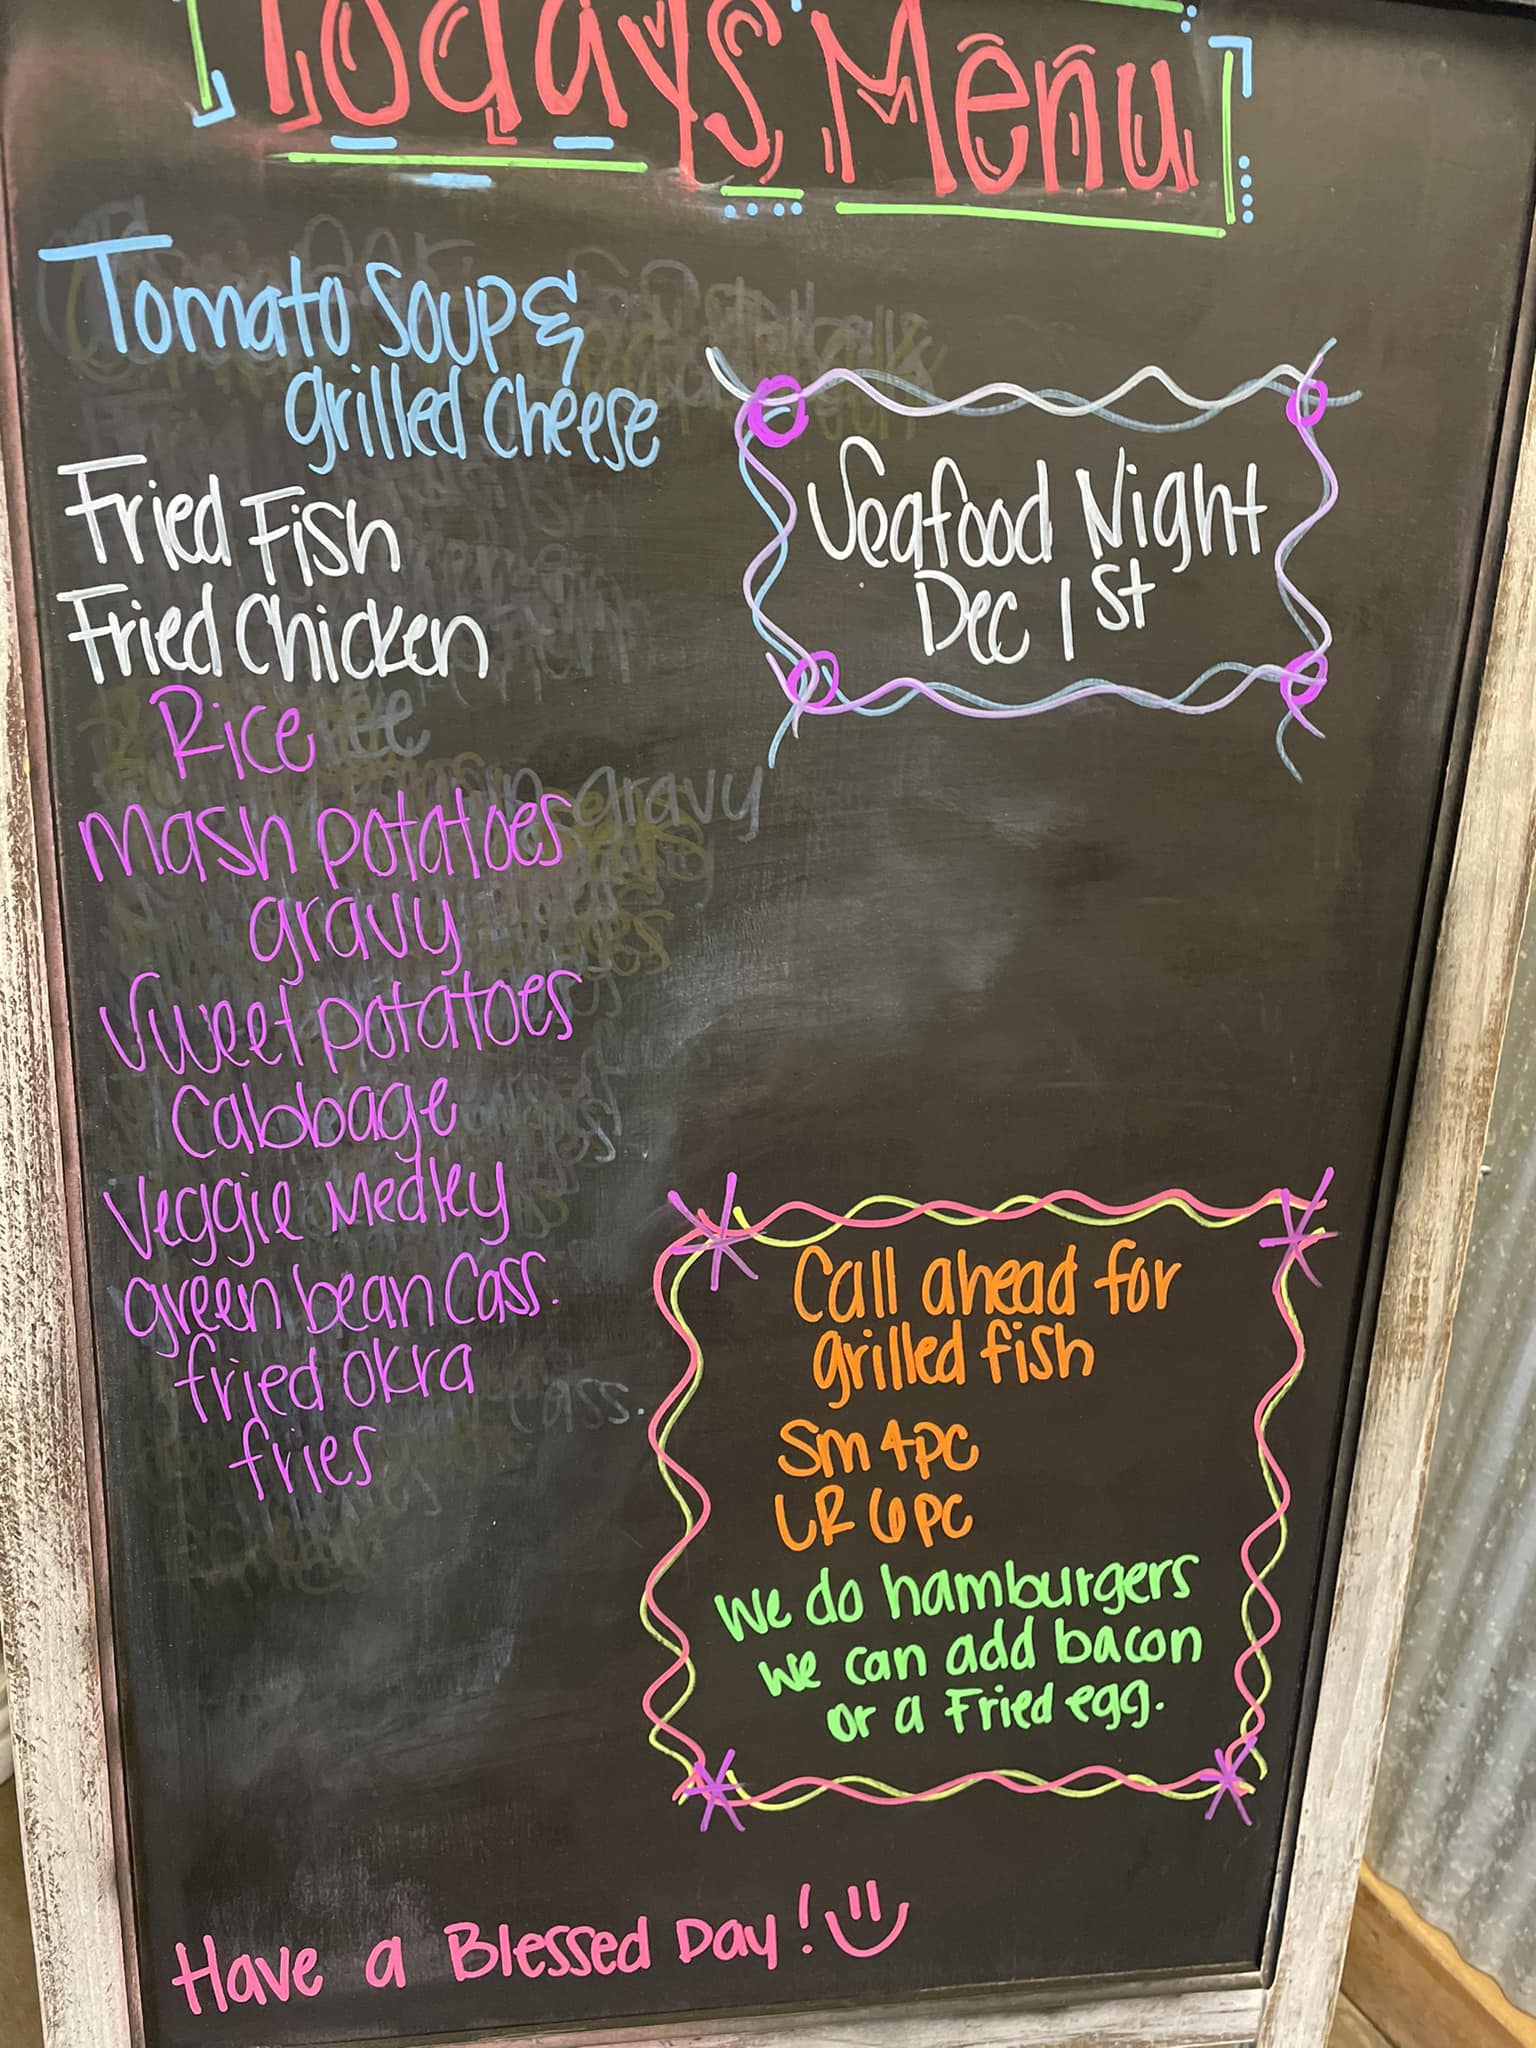 Todays Menu
Tomato Soup &
grilled cheese
Fried Fish
Fried Chicken
Rice
Mash potatoes
gravy
Sweet potatoes
Cabbage
Veggie Medley
green bean Cass.
fried okra
fries
Seafood Night
Dec 1st
Call ahead for
grilled fish
Sm 4pc
LR 6pc
We do hamburgers
we can add bacon
or a Fried egg.
Have a Blessed Day!